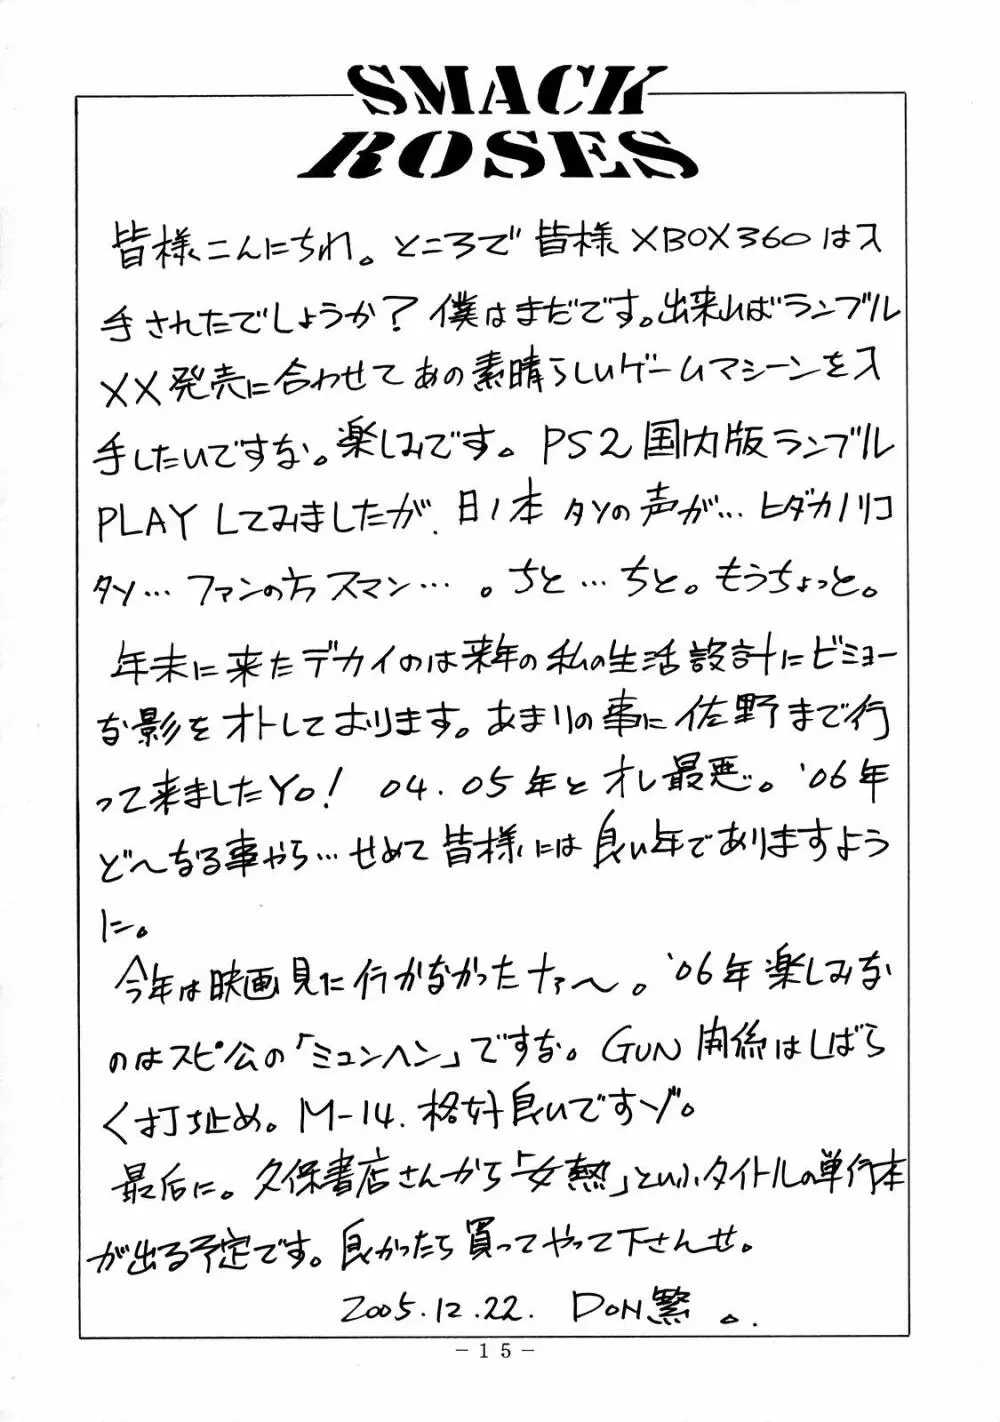 SMACK
ROSES
皆様こんにちわ。ところで皆様XBOX360は入
手されたでしょうか?僕はまだです。出来ればランブル
XX発売に合わせてあの素晴らしいゲームマシーンを入
手したいですな。楽しみです。PS2国内版ランブル
PLAYしてみましたが、日ノ本タソの声が…ヒダカノリコ
タソ…ファンの方スマン…。ちと…ちと。もうちょっと。
年末に来たデカイのは来年の私の生活設計にビミョー
な影をオトしております。あまりの事に佐野まで行
って来ましたYo! 04.05年とオレ最悪。'06年
ど〜なる事やら…せめて皆様には良い年でありますよう
に。
今年は映画見に行かなかったナァ〜。'06年楽しみな
のはスピ公の「ミュンヘン」ですな。GUN関係はしばら
く打ち止め。M-14.格好良いですゾ。
最后に。久保書店さんから「女熱」といふタイトルの単行本
が出る予定です。良かったら買ってやって下さんせ。
2005.12.22. DON繁。
-15-